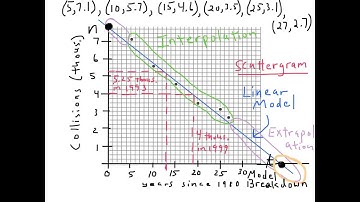 (5,7.1), (10,5.7), (15,4.6), (20,3.5), (25,3.1),
(27,2.7)
n
Interpolation
Scattergram
Linear
Model
Extrapol
ation
5.25 thous.
in 1993
4 thous.
in 1999
Collisions (thous.)
7
6
5
4
3
2
1
0 5 10 15 20 25 30
t
Model
Breakdown
years since 1980